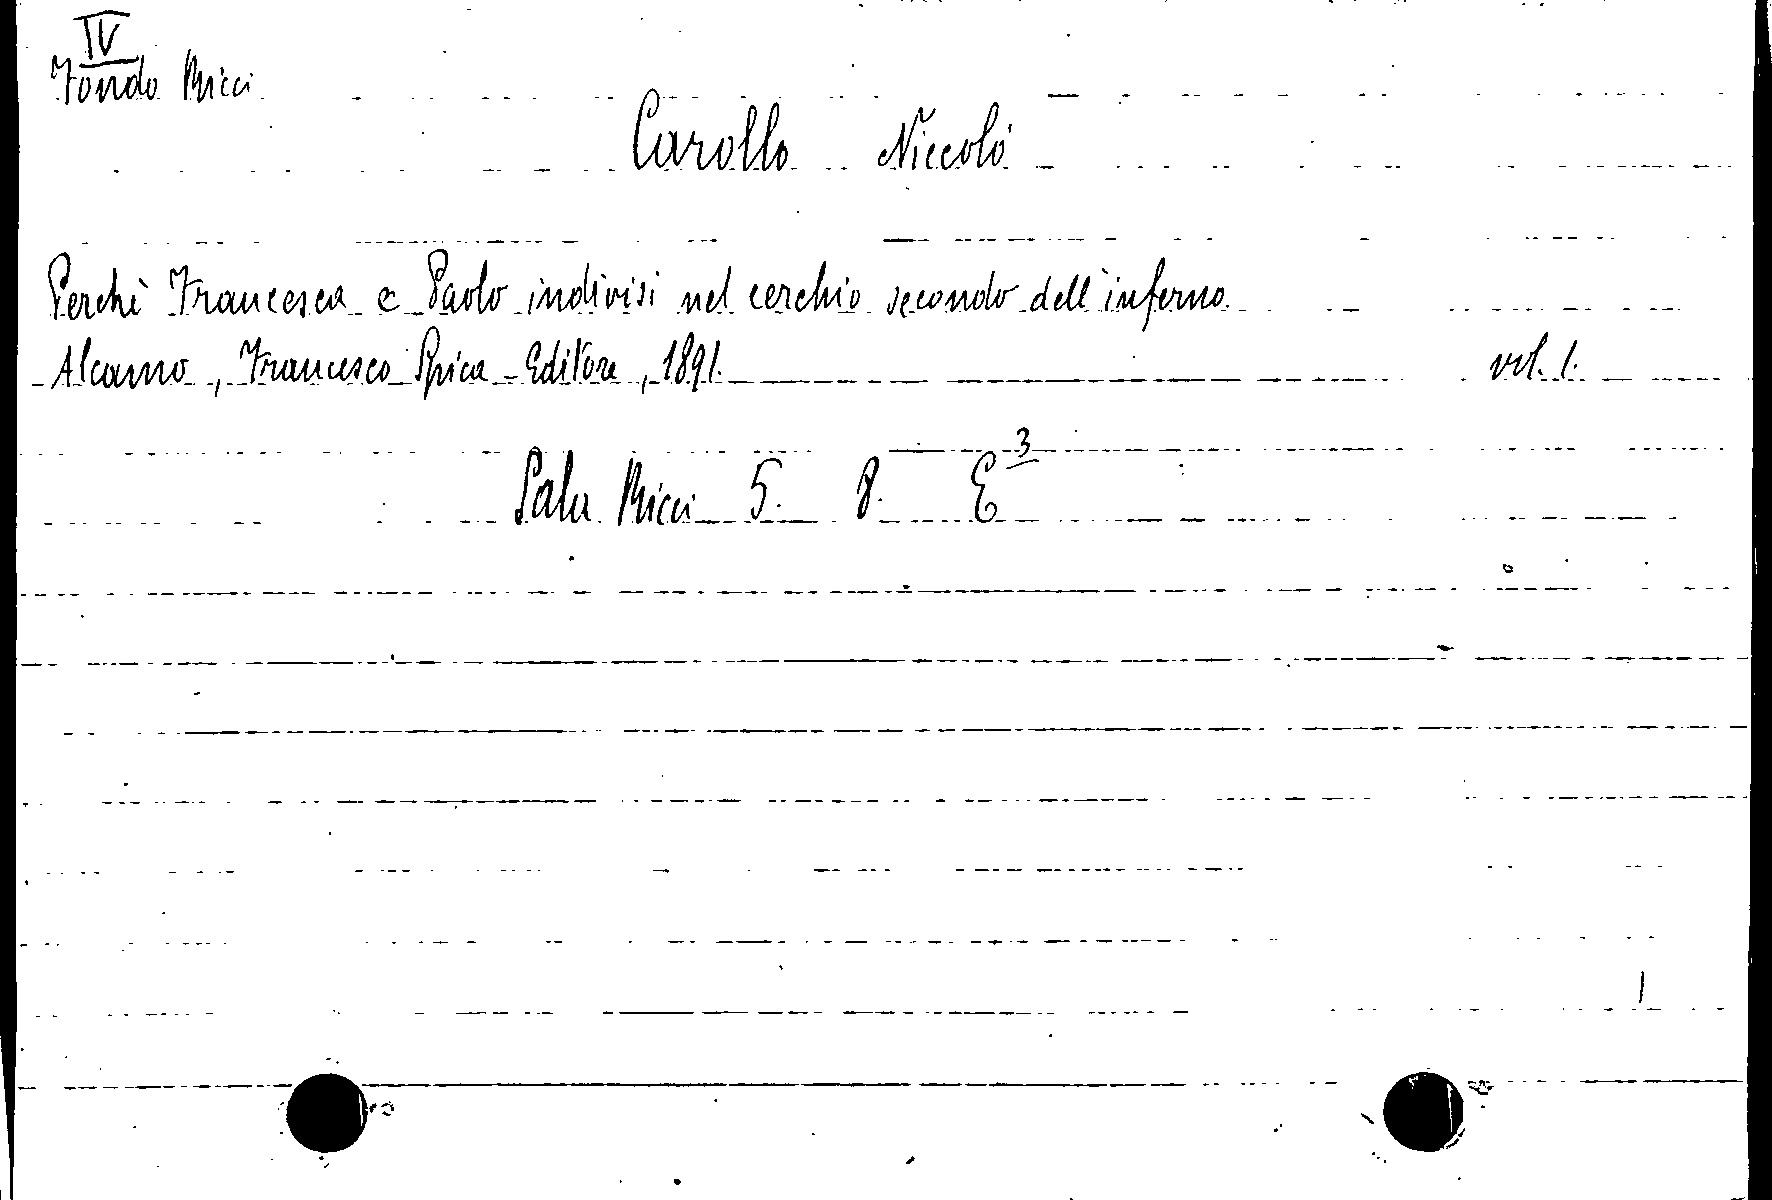 IV
Fondo Ricci
Carollo Niccolò
Perchè Francesca e Paolo indivisi nel cerchio secondo dell'inferno.
Alcamo, Francesco Spica - Editore, 1891. vol. 1.
Sala Ricci 5. 8. E 3